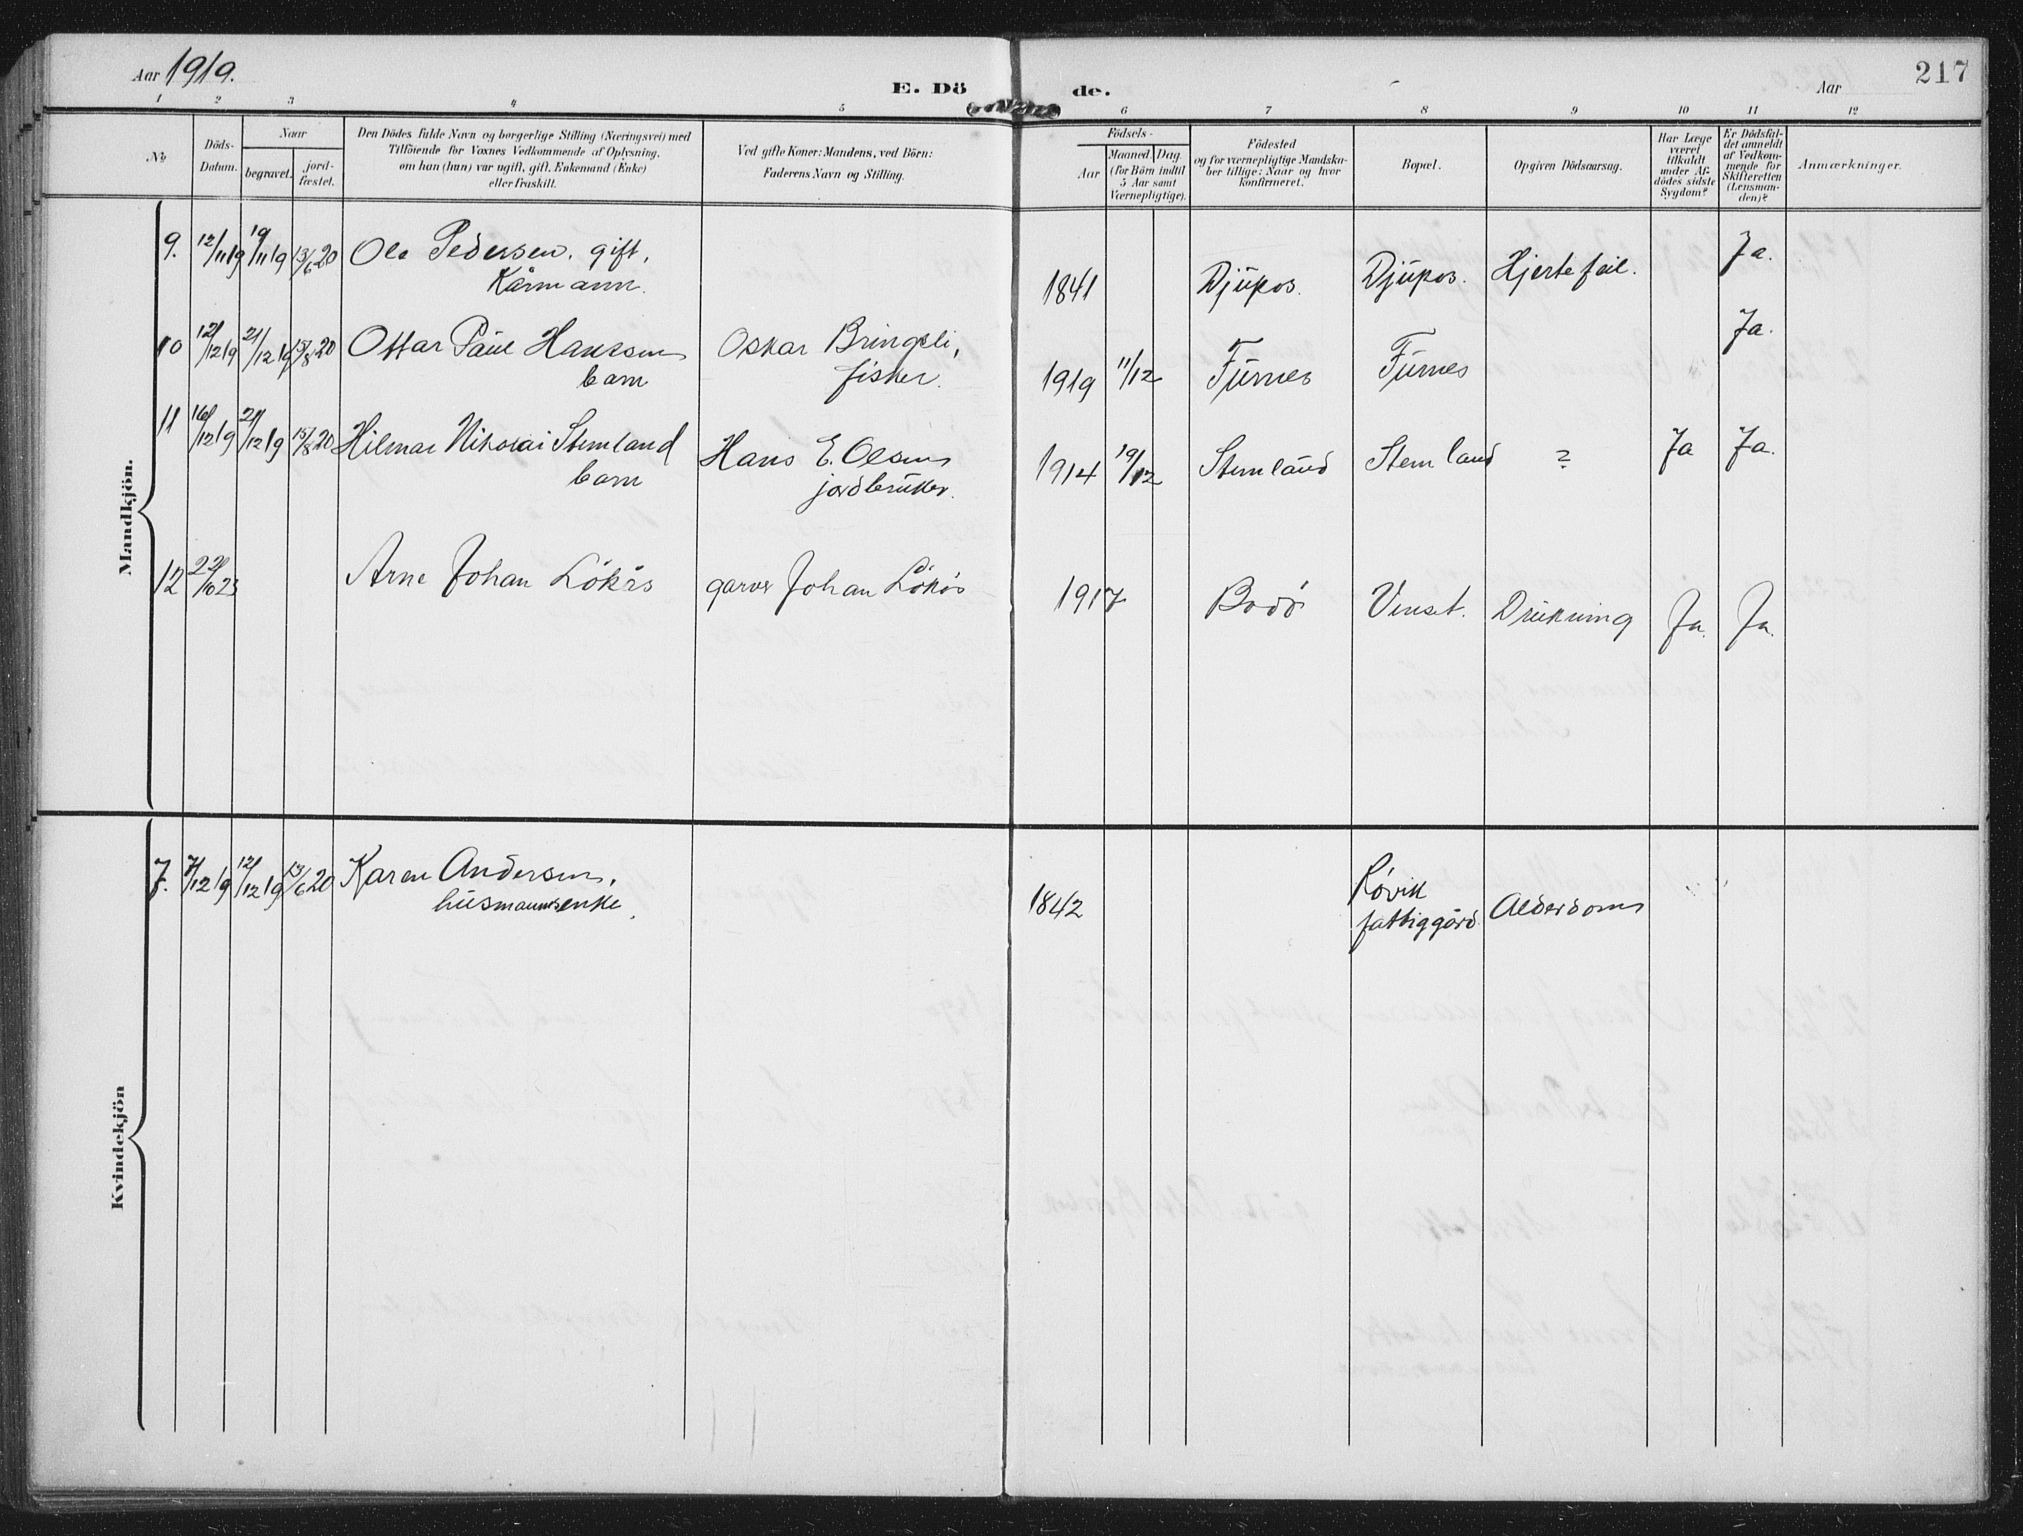 Aar 1919.
E. Dö
de.
Aar
217
1 2 3 4 5 6 7 8 9 10 11 12
No
Döds-
Datum.
Naar
begravet.
jord-
fæstet.
Den Dödes fulde Navn og borgerlige Stilling (Næringsvei) med
Tilföiende for Voxnes Vedkommende af Oplysning,
om han (hun) var ugift, gift, Enkemand (Enke)
eller fraskilt.
Ved gifte Koner: Mandens, ved Börn:
Faderens Navn og Stilling.
Födsels-
Aar
Maaned. Dag.
(for Börn indtil
5 Aar samt
Værnepligtige).
Födested
og for værnepligtige Mandska-
ber tillige: Naar og hvor
konfirmeret.
Bopæl.
Opgiven Dödsaarsag.
Har Læge
været
tilkaldt
under Af-
dödes sidste
Sygdom?
Er Dödsfal-
det anmeldt
af Vedkom-
mende for
Skifteretten
(Lensman-
den)?
Anmærkninger.
Mandkjön.
9. 12/11 19 19/11 19 13/6 20 Ole Pedersen. gift, 1841 Djupos. Djupos. Hjertefeil. Ja.
Kårmann.
10 12/12 19 21/12 19 15/8 20 Ottar Paul Hanssen Oskar Bringsli, 1919 11/12 Furnes Furnes Ja.
barn fisker.
11 16/12 19 21/12 19 15/8 20 Hilmar Nikolai Stemland Hans E. Olsen 1914 19/12 Stemland Stemland ? Ja Ja.
barn jordbruker.
12 22/10 23 Arne Johan Lökås garver Johan Lökås 1917 Bodö Venset. Drukning Ja. Ja.
Kvindekjön
7. 7/12 19 12/12 19 13/6 20 Karen Andersen, 1842 Røvik Alderdom
husmannsenke. fattiggård